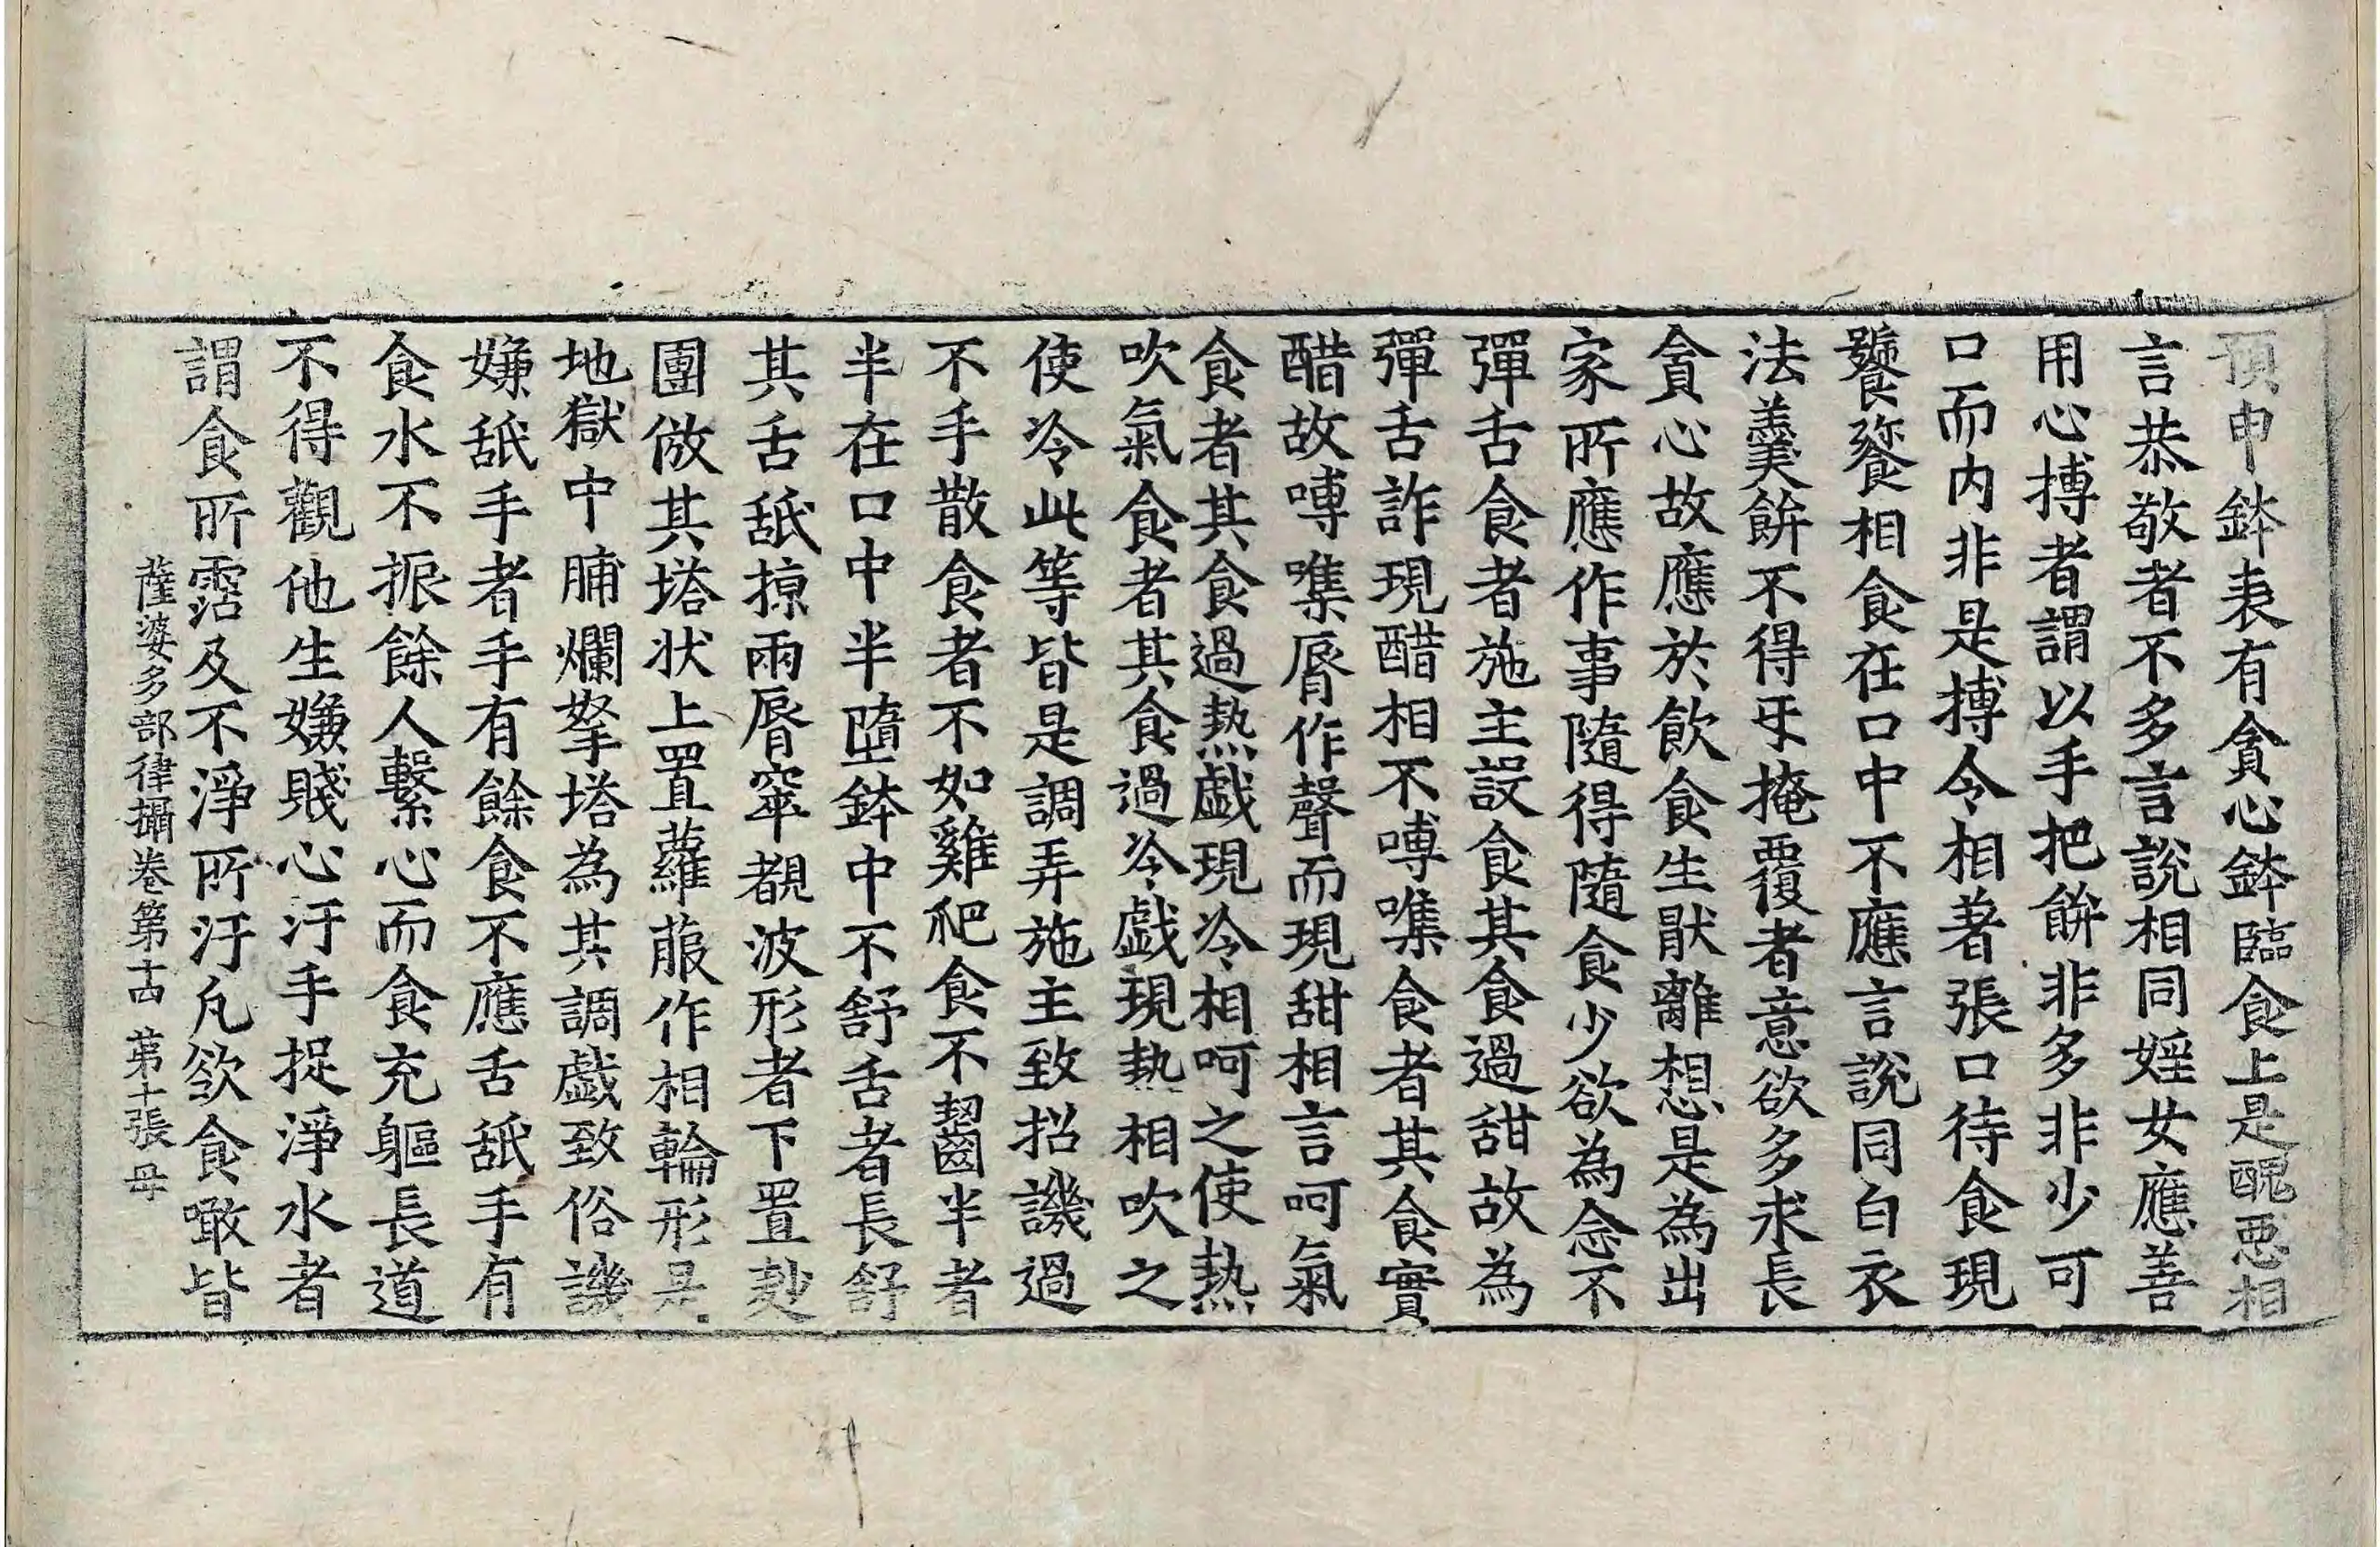 預申鉢表有貪心鉢臨食上是醜惡相
言恭敬者不多言說相同婬女應善
用心摶者謂以手把餅非多非少可
口而內非是摶令相著張口待食現
饕餮相食在口中不應言說同白衣
法羹餅不得𢆯掩覆者意欲多求長
貪心故應於飲食生猒離想是為出
家所應作事隨得隨食少欲為念不
彈舌食者施主設食其食過甜故為
彈舌詐現醋相不㗘㗱食者其食實
醋故㗘㗱脣作聲而現甜相言呵氣
食者其食過熱戱現冷相呵之使熱
吹氣食者其食過冷戱現熱相吹之
使冷此等皆是調弄施主致招譏過
不手散食者不如雞爬食不齧半者
半在口中半墮鉢中不舒舌者長舒
其舌舐掠兩脣窣覩波形者下置麨
團倣其塔状上置蘿菔作相輪形是
地獄中脯爛拏塔為其調戱致俗譏
嫌舐手者手有餘食不應舌舐手有
食水不振餘人繫心而食充軀長道
不得觀他生嫌賤心汙手捉淨水者
謂食所霑及不淨所汙凡欲食噉皆
薩婆多部律攝卷第十四 第十張 毋